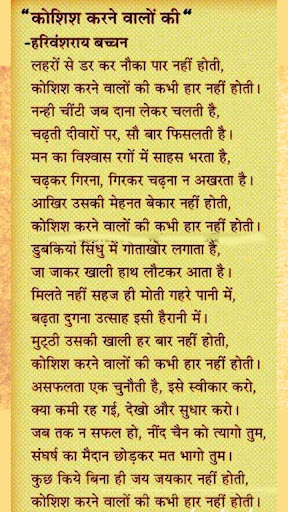 “कोशिश करने वालों की“
-हरिवंशराय बच्चन
लहरों से डर कर नौका पार नहीं होती,
कोशिश करने वालों की कभी हार नहीं होती।
नन्ही चींटी जब दाना लेकर चलती है,
चढ़ती दीवारों पर, सौ बार फिसलती है।
मन का विश्वास रगों में साहस भरता है,
चढ़कर गिरना, गिरकर चढ़ना न अखरता है।
आखिर उसकी मेहनत बेकार नहीं होती,
कोशिश करने वालों की कभी हार नहीं होती।
डुबकियां सिंधु में गोताखोर लगाता है,
जा जाकर खाली हाथ लौटकर आता है।
मिलते नहीं सहज ही मोती गहरे पानी में,
बढ़ता दुगना उत्साह इसी हैरानी में।
मुट्ठी उसकी खाली हर बार नहीं होती,
कोशिश करने वालों की कभी हार नहीं होती।
असफलता एक चुनौती है, इसे स्वीकार करो,
क्या कमी रह गई, देखो और सुधार करो।
जब तक न सफल हो, नींद चैन को त्यागो तुम,
संघर्ष का मैदान छोड़कर मत भागो तुम।
कुछ किये बिना ही जय जयकार नहीं होती,
कोशिश करने वालों की कभी हार नहीं होती।